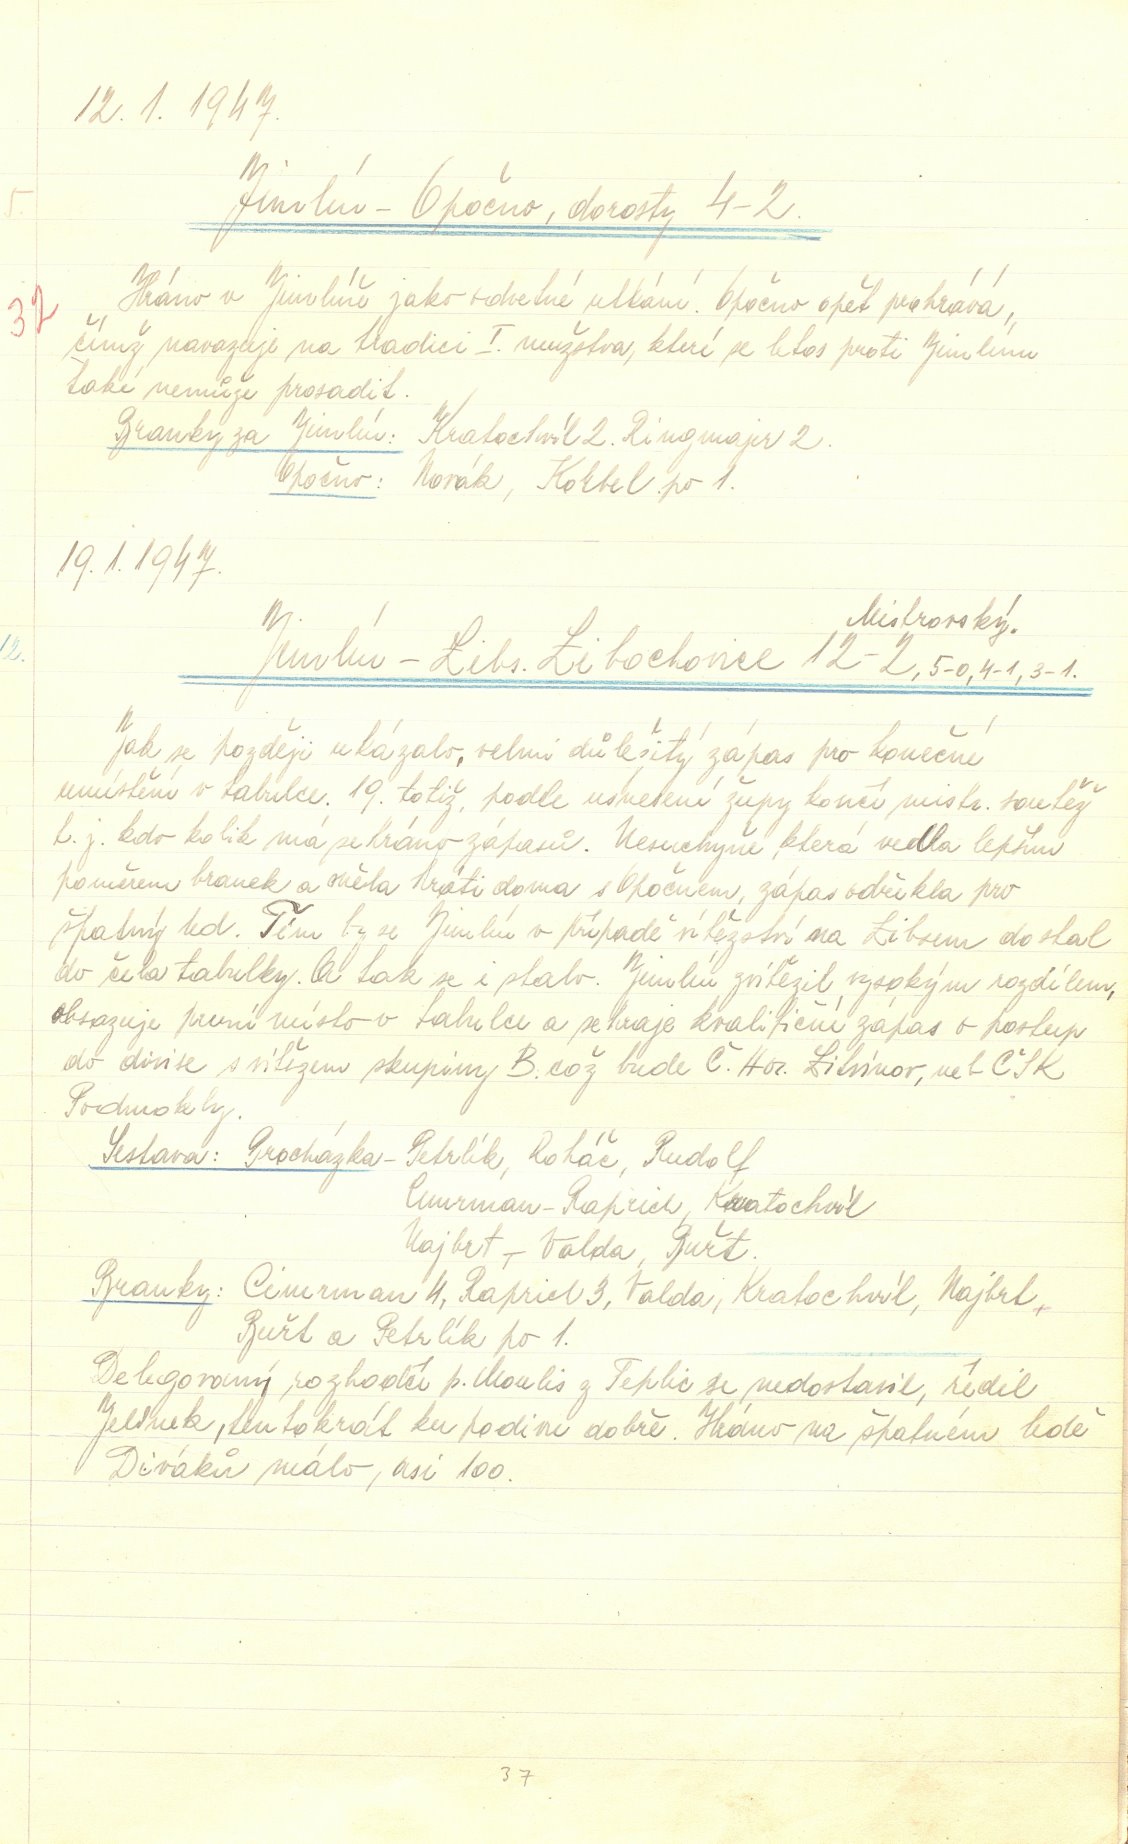 12. 1. 1947.
5.
Jimlín - Opočno, dorosty 4-2.
32
Hráno v Jimlíně jako odvetné utkání. Opočno opět prohrává,
čímž navazuje na tradici I. mužstva, které se letos proti Jimlínu
také nemůže prosadit.
Branky za Jimlín: Kratochvíl 2. Ringmajer 2.
Opočno: Novák, Korbel po 1.
19. 1. 1947.
Mistrovský.
12.
Jimlín - Libs. Libochovice 12-2, 5-0, 4-1, 3-1.
Jak se později ukázalo, velmi důležitý zápas pro konečné
umístění v tabulce. 19. totiž, podle usnesení župy končí mistr. soutěž
t. j. kdo kolik má sehráno zápasů. Nesuchyně, která vedla lepším
poměrem branek a měla hráti doma s Opočnem, zápas odřekla pro
špatný led. Tím by se Jimlín v případě vítězství na Libsem dostal
do čela tabulky. A tak se i stalo. Jimlín zvítězil vysokým rozdílem,
obsazuje první místo v tabulce a sehraje kvalifičné zápas o postup
do divise s vítězem skupiny B. což bude Č. Hor. Litvínov, neb ČSK
Podmokly.
Sestava: Procházka - Petrlík, Roháč, Rudolf
Cimrman - Raprich, Kratochvíl
Najbrt - Valda, Buřt.
Branky: Cimrman 4, Raprich 3, Valda, Kratochvíl, Najbrt,
Buřt a Petrlík po 1.
Delegovaný rozhodčí p. Moulis z Teplic se nedostavil, řídil
Jelínek, tentokrát ku podivu dobře. Hráno na špatném ledě
Diváků málo, asi 100.
37